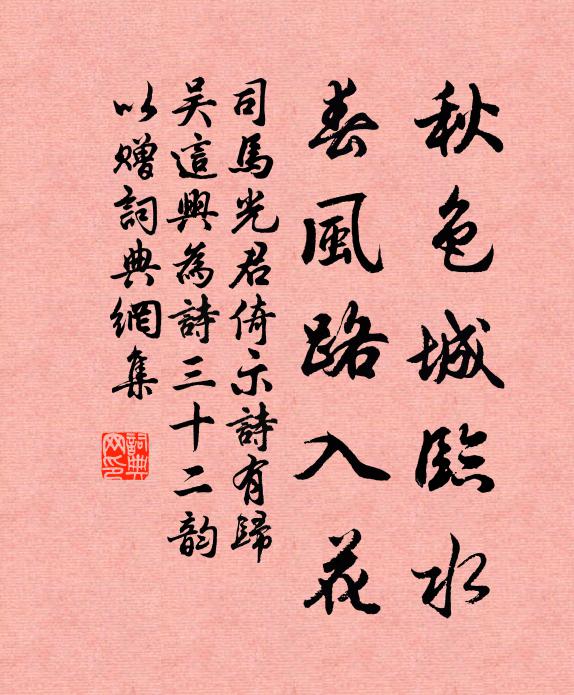 秋色城臨水
春風路入花
司馬光君倚示詩有歸
吴這興為詩三十二韵
以贈詞典網集
詞典网印